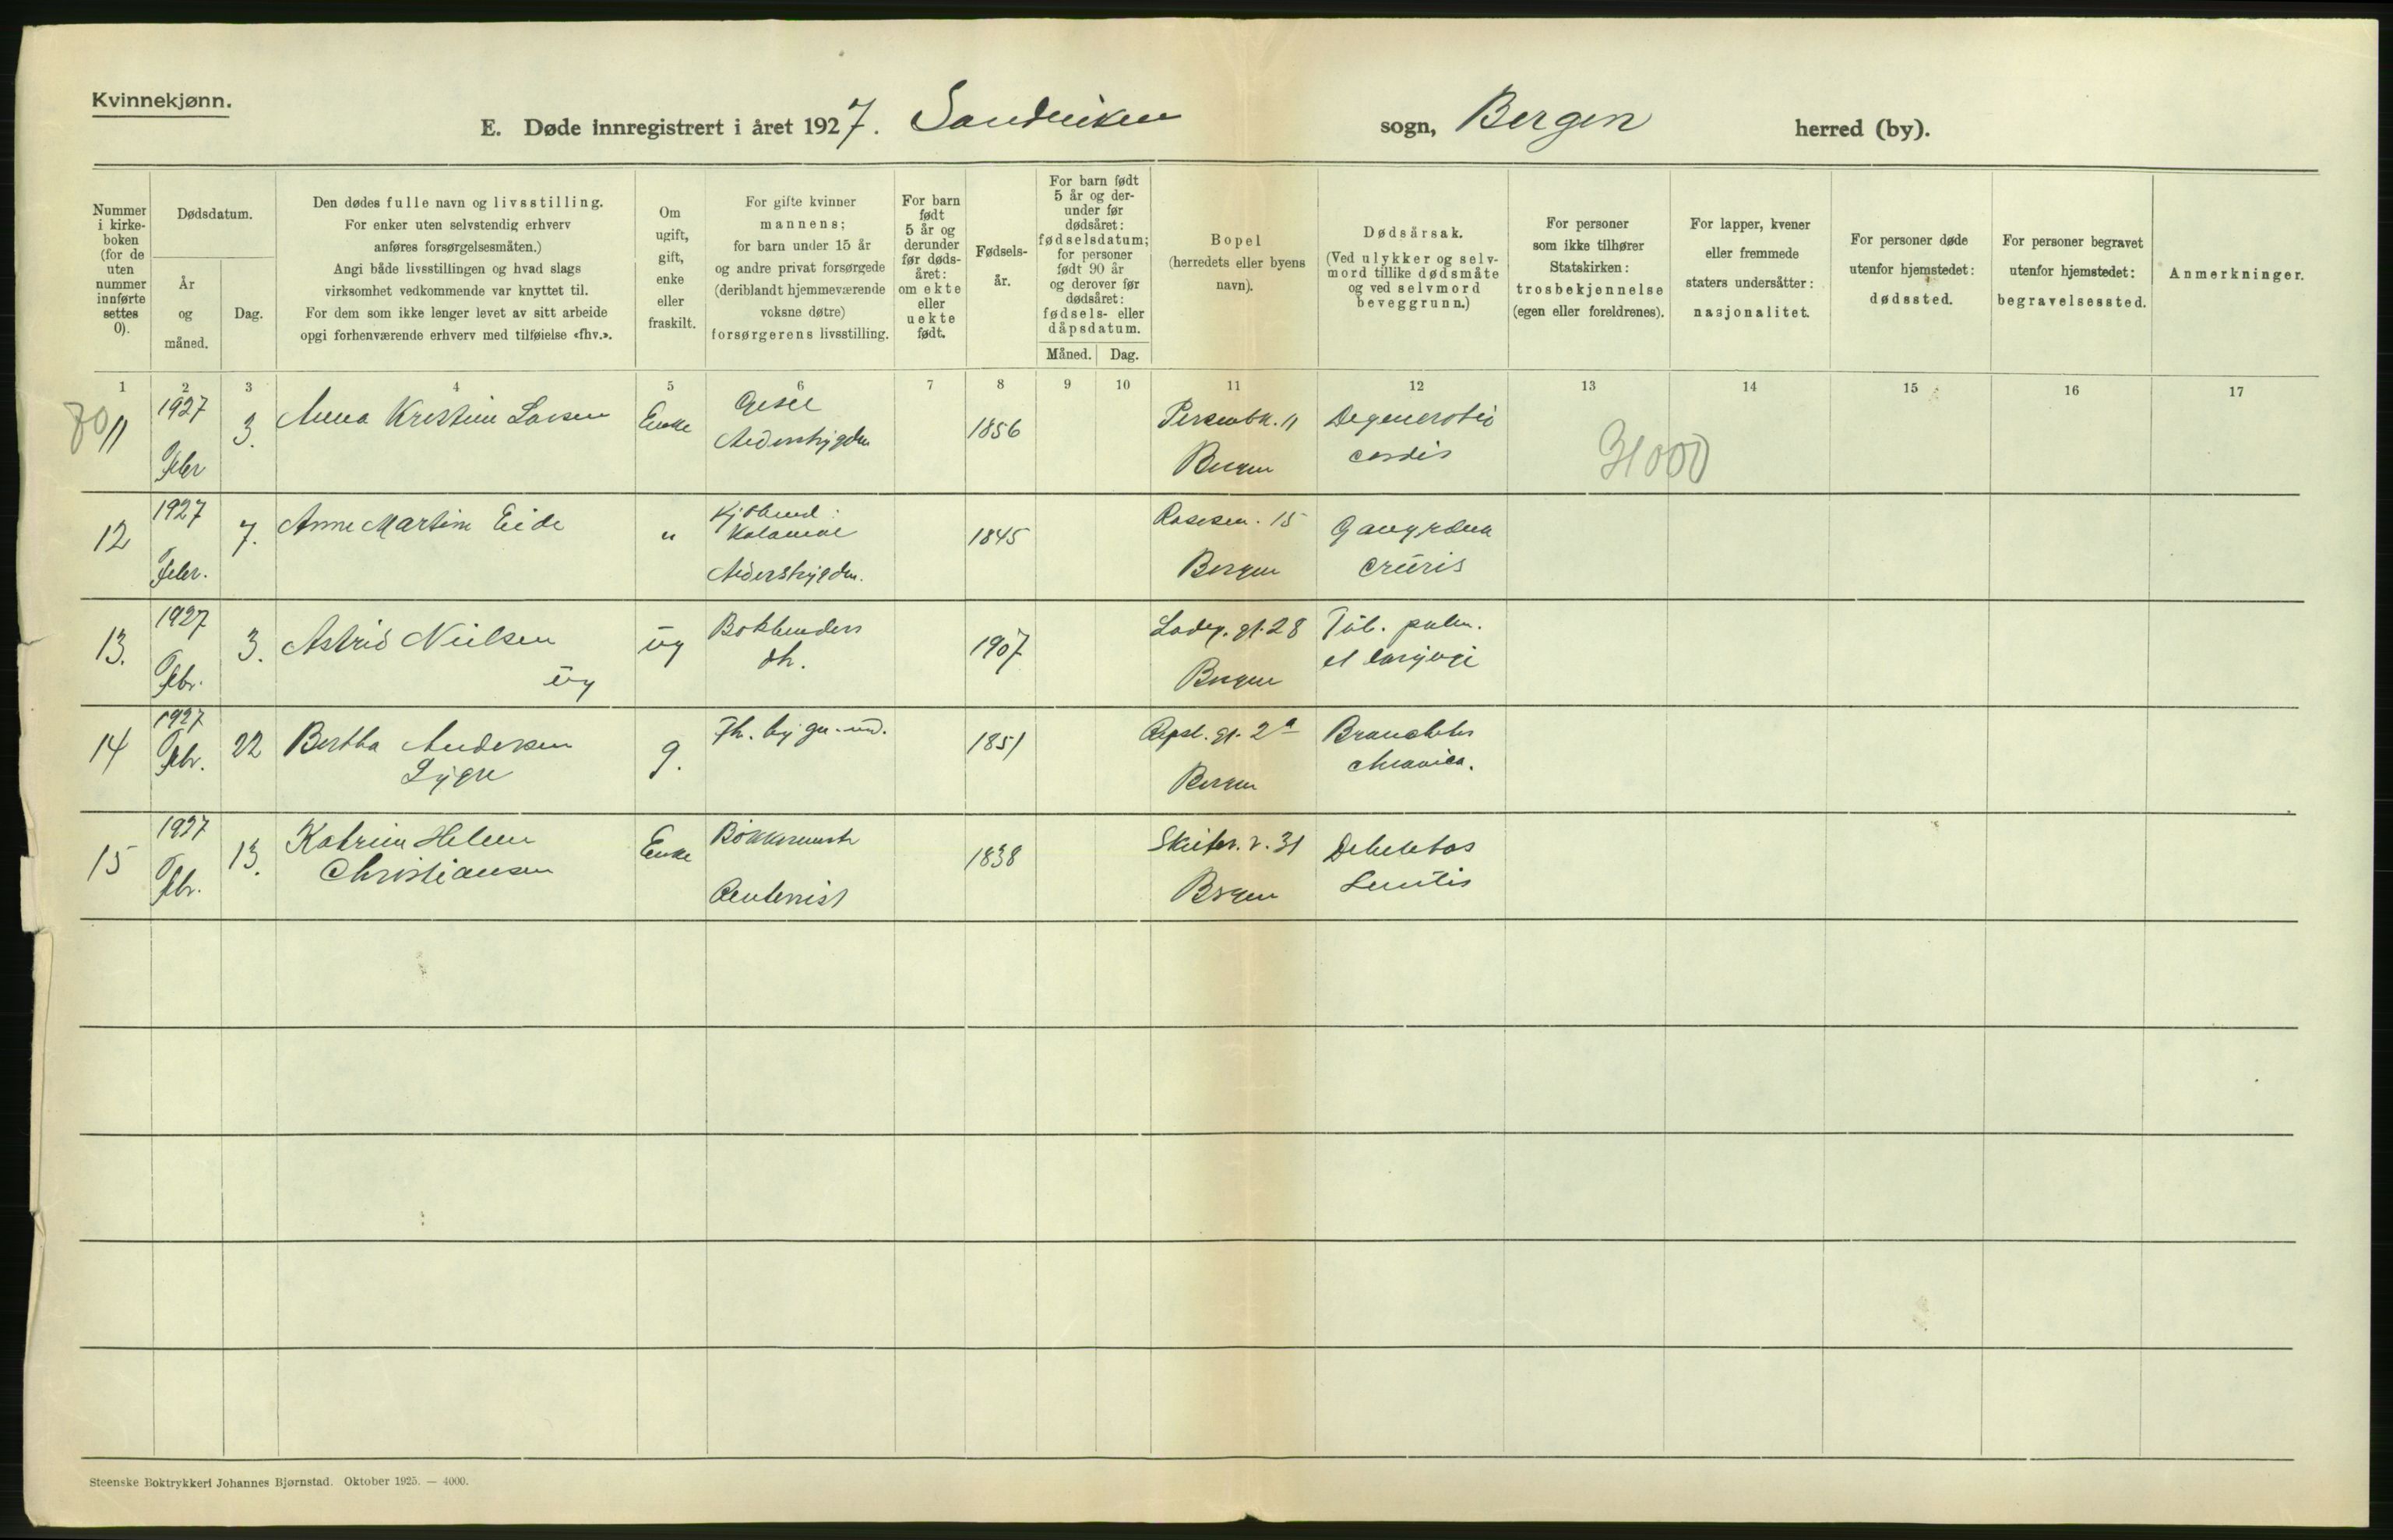 Kvinnekjønn.
E. Døde innregistrert i året 1927. Sandviken sogn, Bergen herred (by).
Nummer i kirkeboken (for de uten nummer innførte settes 0).
Dødsdatum.
År og måned.
Dag.
Den dødes fulle navn og livsstilling.
For enker uten selvstendig erhverv
anføres forsørgelsesmåten.)
Angi både livsstillingen og hvad slags
virksomhet vedkommende var knyttet til.
For dem som ikke lenger levet av sitt arbeide
opgi forhenværende erhverv med tilføielse «fhv.».
Om
ugift,
gift,
enke
eller
fraskilt.
For gifte kvinner
mannens;
for barn under 15 år
og andre privat forsørgede
(deriblandt hjemmeværende
voksne døtre)
forsørgerens livsstilling.
For barn
født
5 år og
derunder
før døds-
året:
om ekte
eller
uekte
født.
Fødsels-
år.
For barn født
5 år og der-
under før
dødsåret:
fødselsdatum;
for personer
født 90 år
og derover før
dødsåret:
fødsels- eller
dåpsdatum.
Måned. Dag.
Bopel
(herredets eller byens
navn).
Dødsårsak.
(Ved ulykker og selv-
mord tillike dødsmåte
og ved selvmord
beveggrunn.)
For personer
som ikke tilhører
Statskirken:
trosbekjennelse
(egen eller foreldrenes).
For lapper, kvener
eller fremmede
staters undersåtter:
nasjonalitet.
For personer døde
utenfor hjemstedet:
dødssted.
For personer begravet
utenfor hjemstedet:
begravelsessted.
Anmerkninger.
1 2 3 4 5 6 7 8 9 10 11 12 13 14 15 16 17
11 1927 Febr 3. Anna Kristine Larsen Enke Alderstrygden 1856 11 Bergen Degeneratio cordis
31000
12 1927 Febr. 7. Anne Martine Eide " Alderstrygden. 1845 Rosesm. 15 Bergen Gangræna cruris
13. 1927 Febr. 3. Astrid Nielsen ug ug Bokbinders dt. 1907 Ladeg. gt. 28 Bergen Tub. pulm. et laryngi
14 1927 Febr. 22 Bertha Andersen Lygre g. 1851 Repsl. gt. 2a Bergen Bronchitis chronica.
15 1927 Febr. 13. Katrine Helene Christiansen Enke Rentenist 1838 Skuter. v. 31 Bergen Debilitas Senilis
Steenske Boktrykkeri Johannes Bjørnstad. Oktober 1925. — 4000.